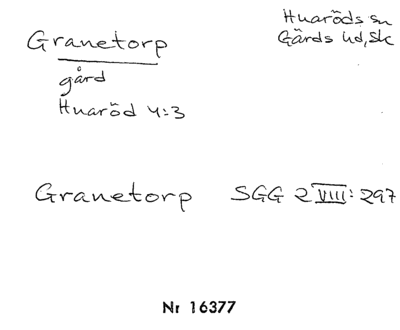 Granetorp
Huaröds sn
Gärds hd, Sk
gård
Huaröd 4:3
Granetorp SGG 2 VIII: 297
Nr 16377